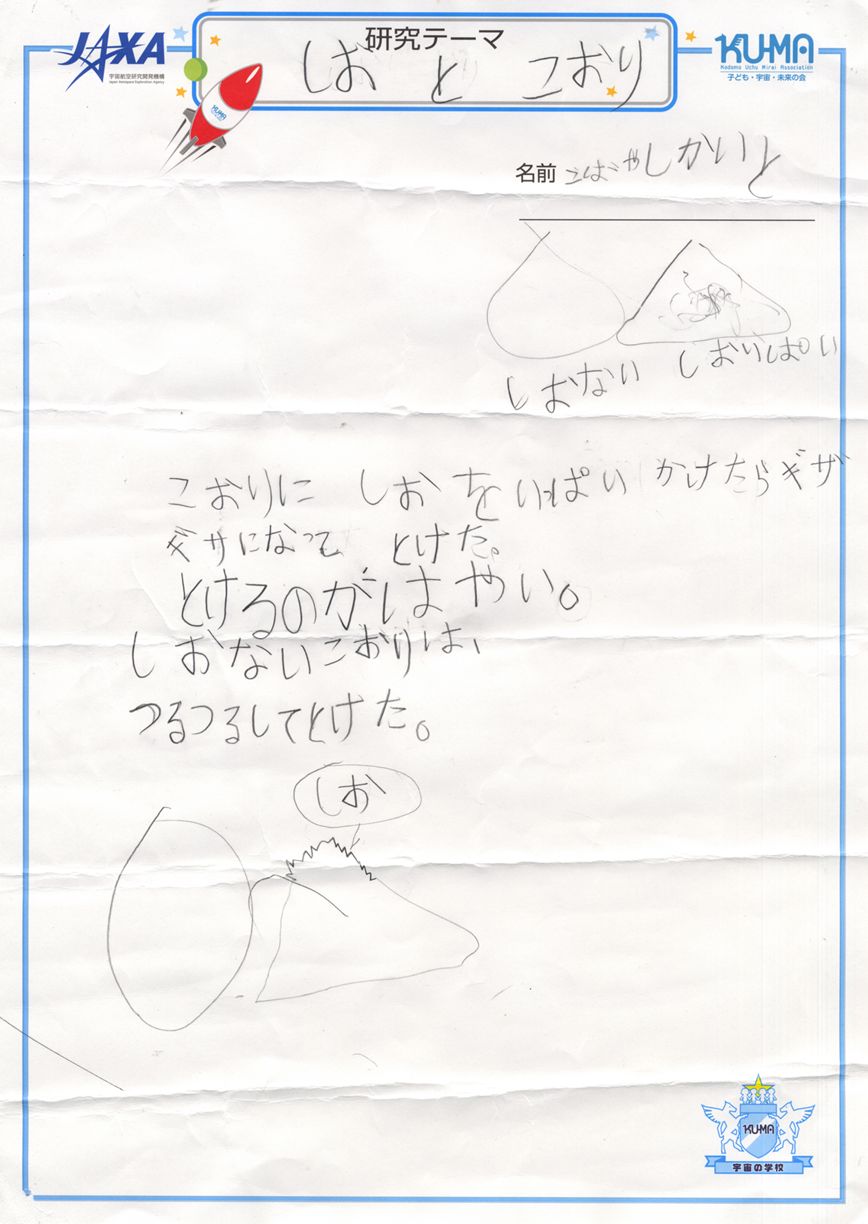 JAXA
宇宙航空研究開発機構
Japan Aerospace Exploration Agency
研究テーマ
しお と こおり
KUMA
Kodomo Uchu Mirai Association
子ども・宇宙・未来の会
KUMA
名前 こばやしかいと
しおない しおいっぱい
こおりに しおを いっぱい かけたらギザ
ギザになって とけた。
とけるのがはやい。
しおないこおりは、
つるつるしてとけた。
しお
KUMA
宇宙の学校